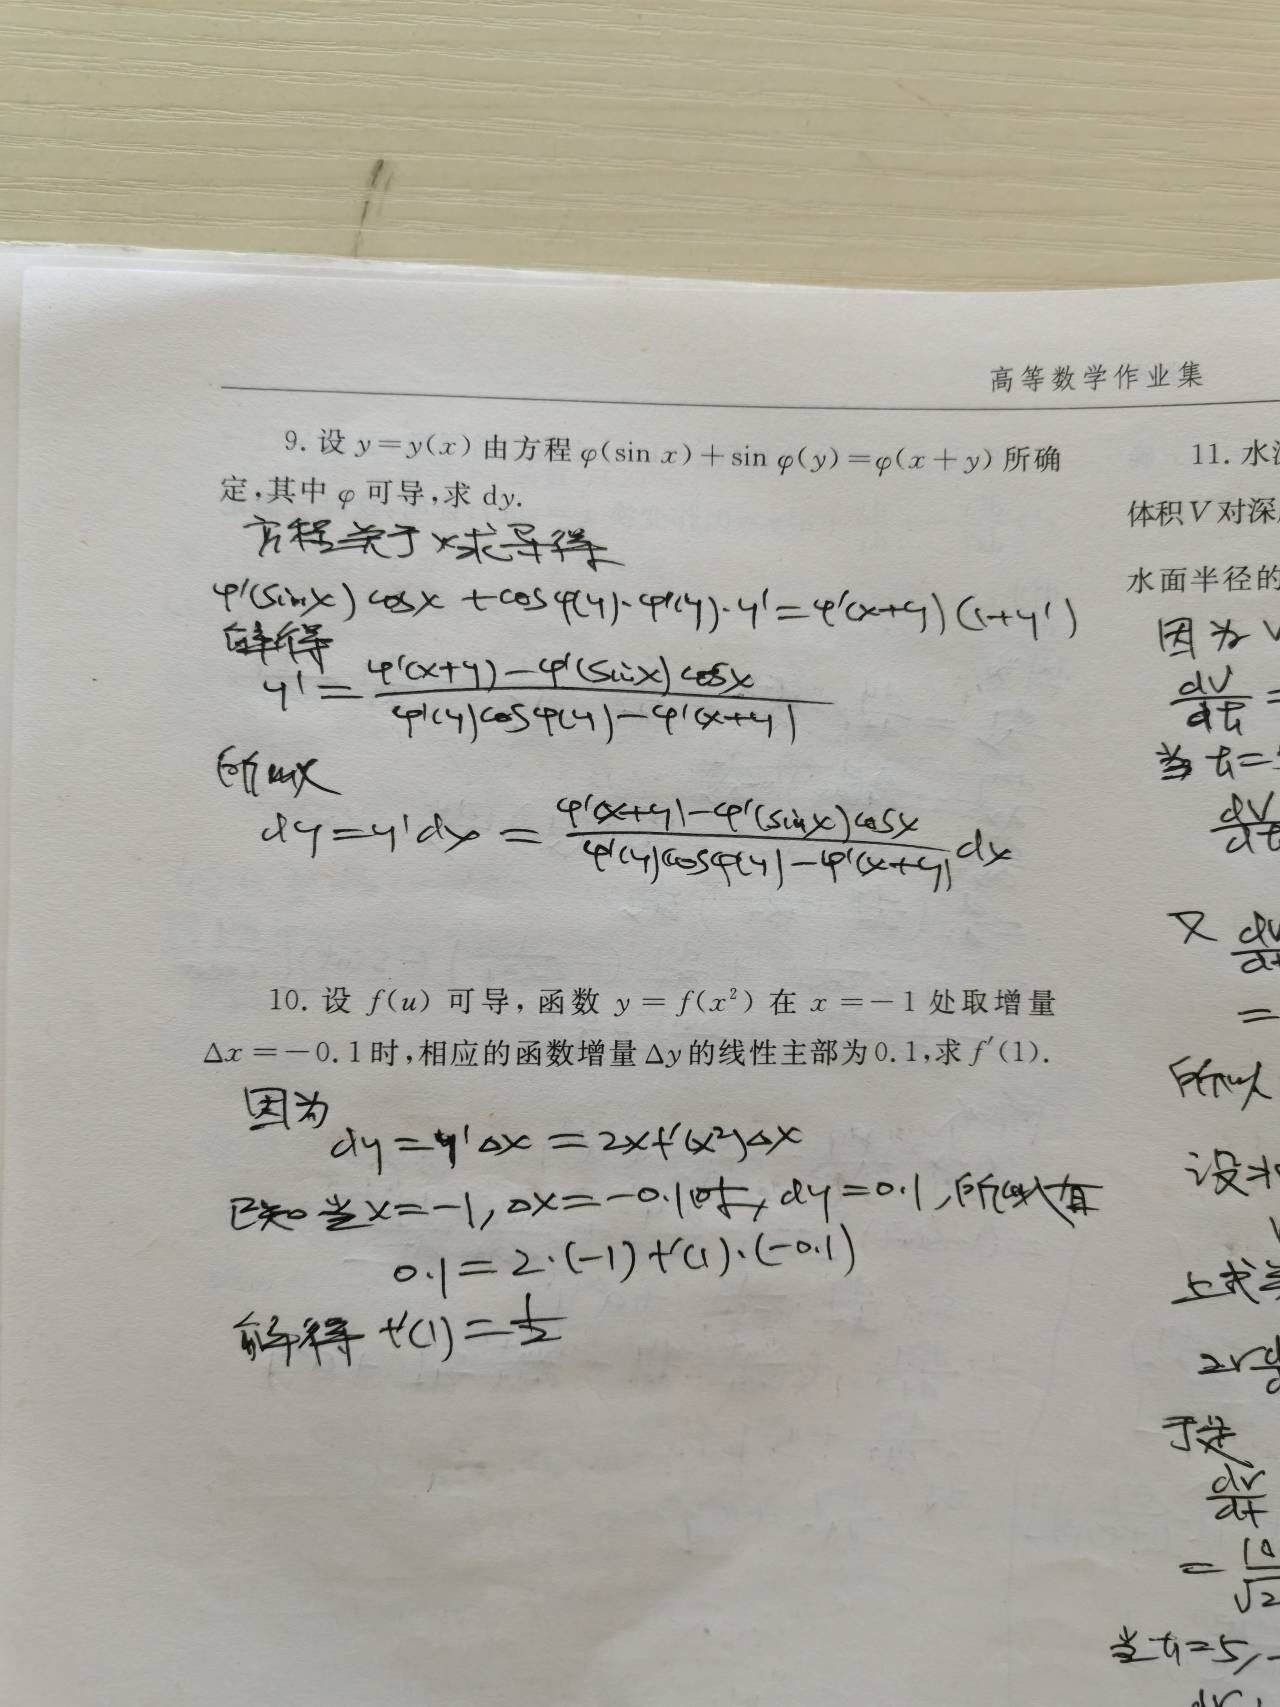 高等数学作业集
9. 设 y=y(x) 由方程 φ(sin x)+sin φ(y)=φ(x+y) 所确
定,其中 φ 可导,求 dy.
方程关于x求导得
φ'(sinx)cosx+cosφ(y)·φ'(y)·y'=φ'(x+y)(1+y')
解得
y'=\frac{φ'(x+y)-φ'(sinx)cosx}{φ'(y)cosφ(y)-φ'(x+y)}
所以
dy=y'dx=\frac{φ'(x+y)-φ'(sinx)cosx}{φ'(y)cosφ(y)-φ'(x+y)}dx
10. 设 f(u) 可导, 函数 y=f(x²) 在 x=-1 处取增量
Δx=-0.1时,相应的函数增量 Δy的线性主部为0.1,求 f'(1).
因为
dy=y'Δx=2xf'(x²)Δx
已知当x=-1,Δx=-0.1时,dy=0.1,所以有
0.1=2·(-1)f'(1)·(-0.1)
解得 f'(1)=\frac{1}{2}
11. 水
体积V对深
水面半径的
因为 V
\frac{dV}{dt}=
当 t=5
\frac{dV}{dt}
又 \frac{dV}{dt}
=
所以
设水
上式
2r
于是
\frac{dr}{dt}
=\frac{10}{√2}
当t=5,